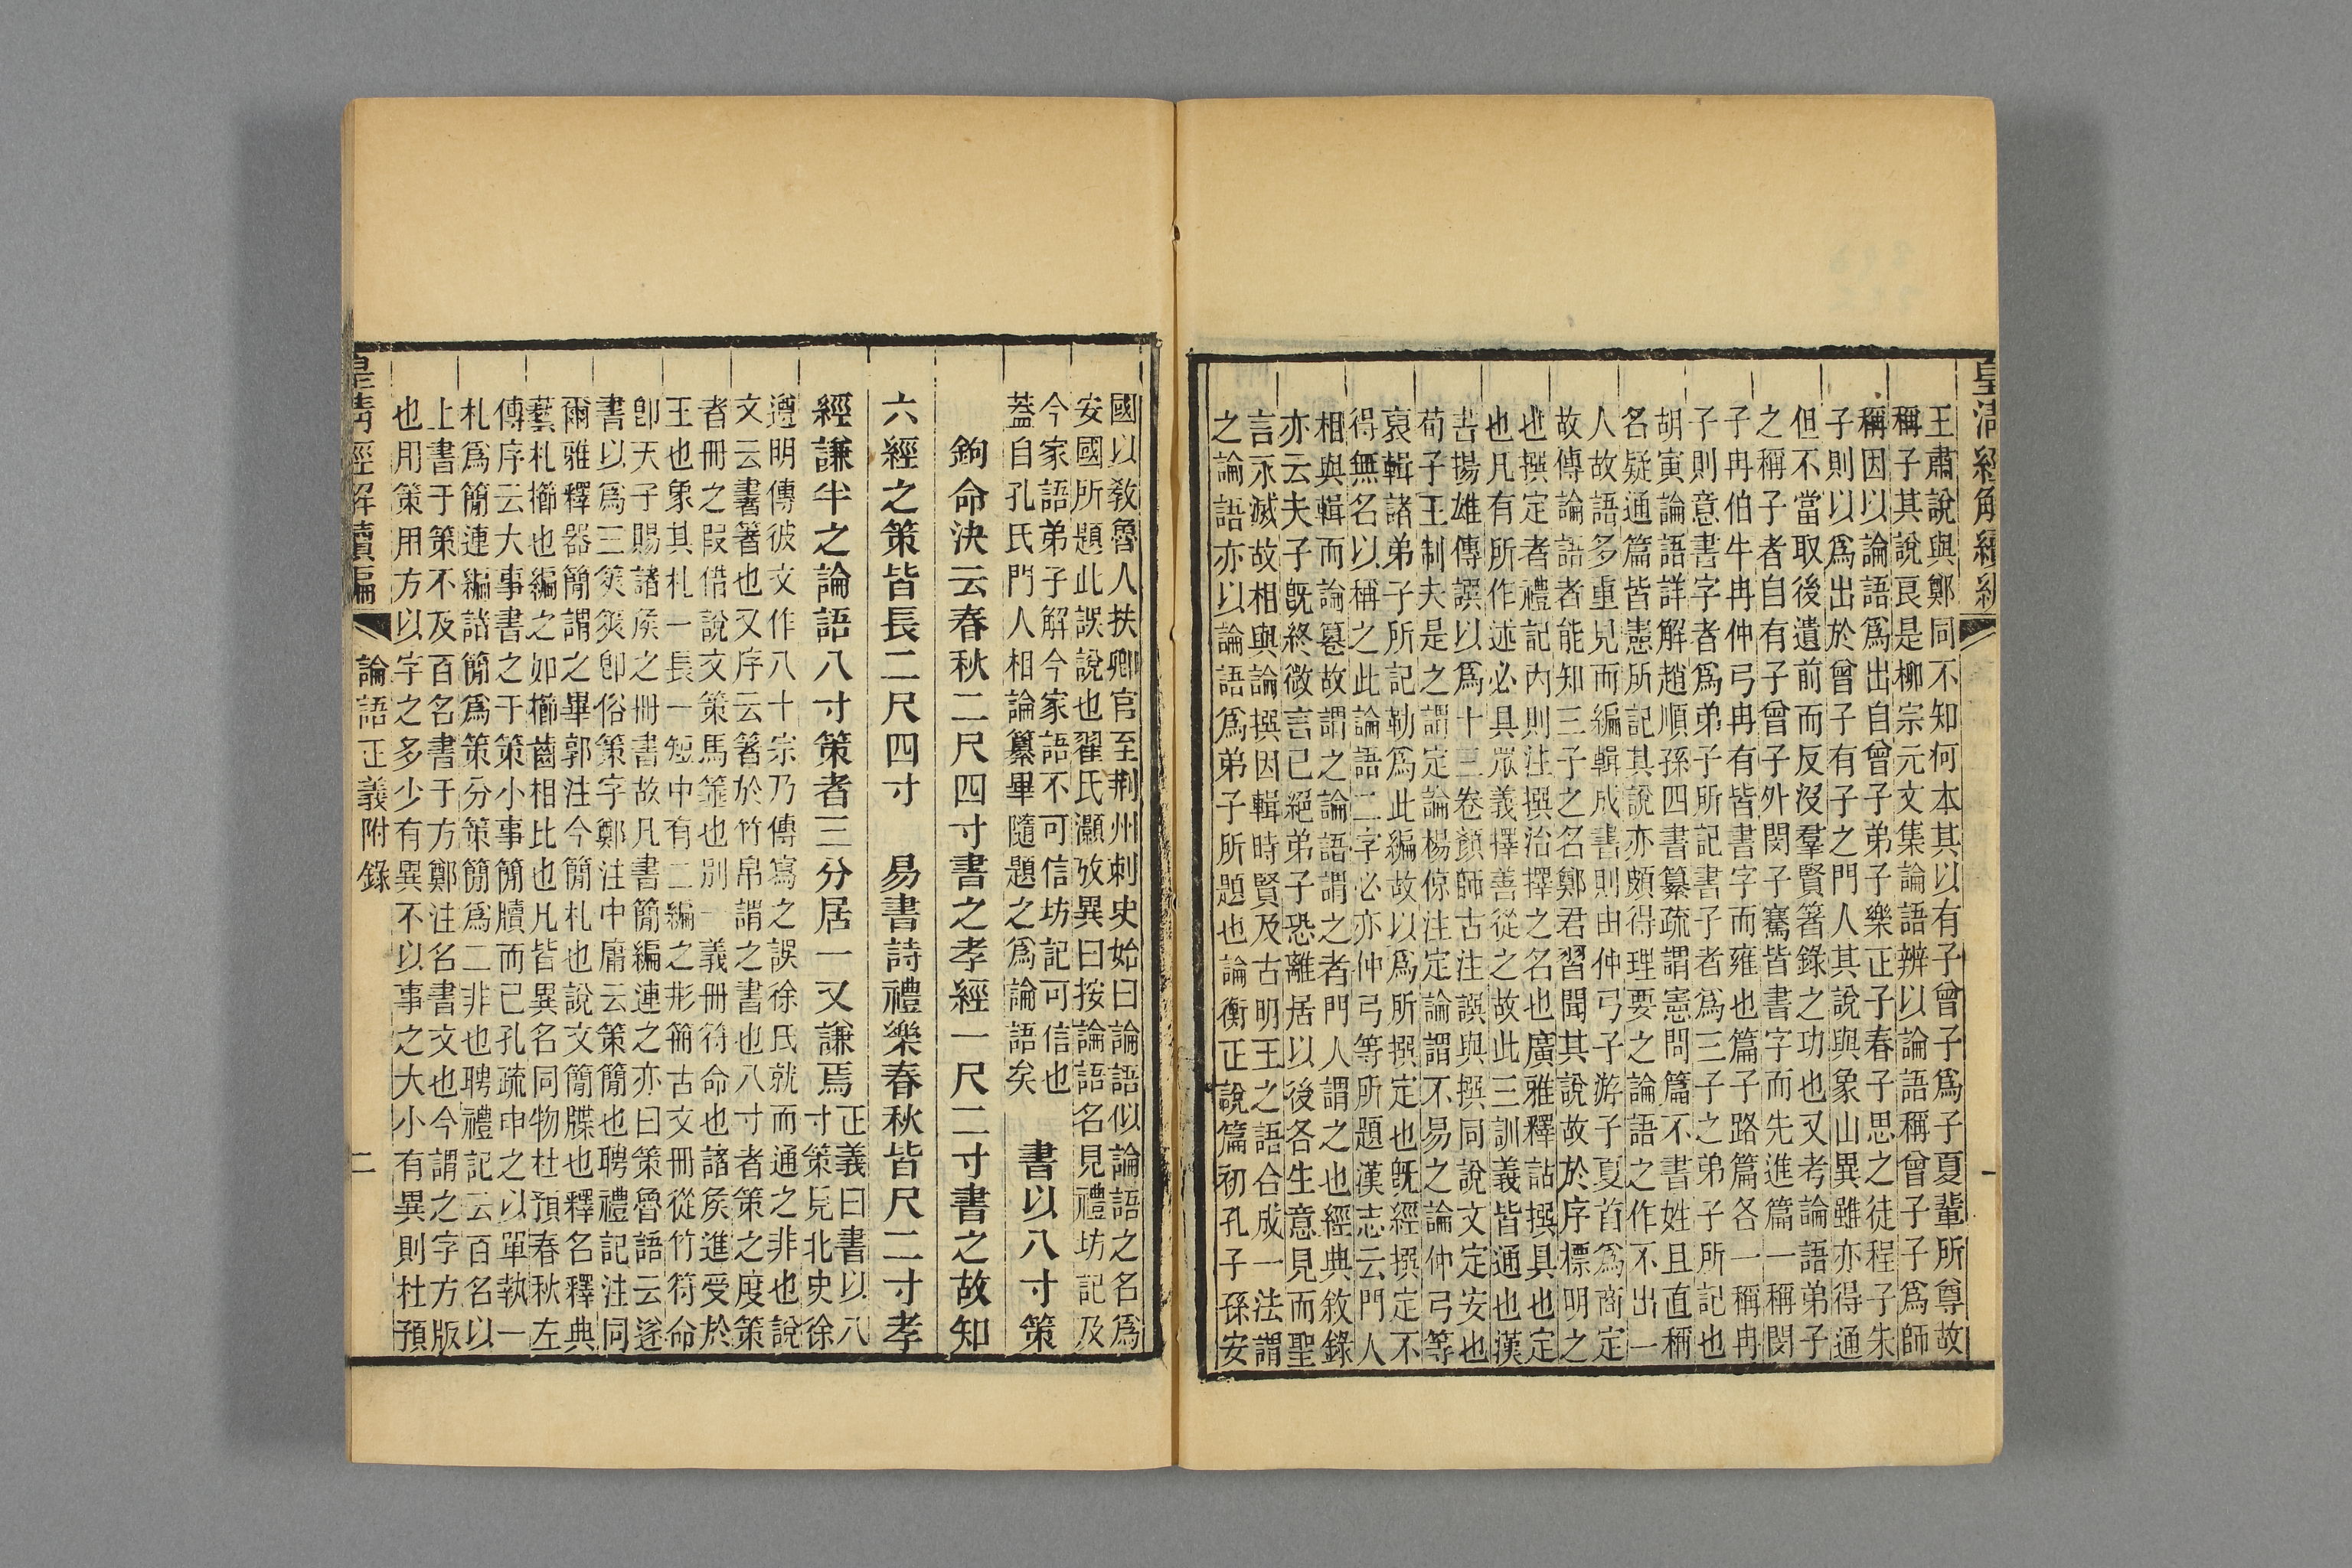 皇清經解續編
一
王肅說與鄭同不知何本其以有子曾子爲子夏輩所尊故
稱子其說良是柳宗元文集論語辨以論語稱曾子子爲師
稱因以論語爲出自曾子弟子樂正子春子思之徒程子朱
子則以爲出於曾子有子之門人其說與象山異雖亦得通
但不當取後遺前而反沒羣賢箸錄之功也又考論語弟子
之稱子者自有子曾子外閔子騫皆書字而先進篇一稱閔
子冉伯牛冉仲弓冉有皆書字而雍也篇子路篇各一稱冉
子則意書字者爲弟子所記書子者爲三子之弟子所記也
胡寅論語詳解趙順孫四書纂疏謂憲問篇不書姓且直稱
名疑通篇皆憲所記其說亦頗得理要之論語之作不出一
人故語多重見而編輯成書則由仲弓子游子夏首爲商定
故傳論語者能知三子之名鄭君習聞其說故於序標明之
也撰定者禮記內則注撰治擇之名也廣雅釋詁撰具也定
也凡有所作述必具眾義擇善從之故此三訓義皆通也漢
書揚雄傳譔以爲十三卷顏師古注譔與撰同說文定安也
荀子王制夫是之謂定論楊倞注定論謂不易之論仲弓等
裒輯諸弟子所記勒爲此編故以爲所撰定也旣經撰定不
得無名以稱之此論語二字必亦仲弓等所題漢志云門人
相與輯而論篹故謂之論語謂之者門人謂之也經典敘錄
亦云夫子旣終微言已絕弟子恐離居以後各生意見而聖
言永滅故相與論撰因輯時賢及古明王之語合成一法謂
之論語亦以論語爲弟子所題也論衡正說篇初孔子孫安
國以敎魯人扶卿官至荆州刺史始曰論語似論語之名爲
安國所題此誤說也翟氏灝攷異曰按論語名見禮坊記及
今家語弟子解今家語不可信坊記可信也
蓋自孔氏門人相論纂畢隨題之爲論語矣
書以八寸策
鉤命決云春秋二尺四寸書之孝經一尺二寸書之故知
六經之策皆長二尺四寸 易書詩禮樂春秋皆尺二寸孝
經謙半之論語八寸策者三分居一又謙焉
正義曰書以八
寸策見北史徐
遵明傳彼文作八十宗乃傳寫之誤徐氏就而通之非也說
文云書箸也又序云箸於竹帛謂之書也八寸者策之度策
者冊之叚借說文策馬箠也別一義冊符命也諸侯進受於
王也象其札一長一短中有二編之形笧古文冊從竹符命
卽天子賜諸侯之冊書故凡書簡編連之亦曰策魯語云逐
書以爲三筴筴卽俗策字鄭注中庸云策簡也聘禮記注同
爾雅釋器簡謂之畢郭注今簡札也說文簡牒也釋名釋典
藝札櫛也編之如櫛齒相比也凡皆異名同物杜預春秋左
傳序云大事書之于策小事簡牘而已孔疏申之以單執一
札爲簡連編諸簡爲策分策簡爲二非也聘禮記云百名以
上書于策不及百名書于方鄭注名書文也今謂之字方版
也用策用方以字之多少有異不以事之大小有異則杜預
皇清經解續編
論語正義附錄
二